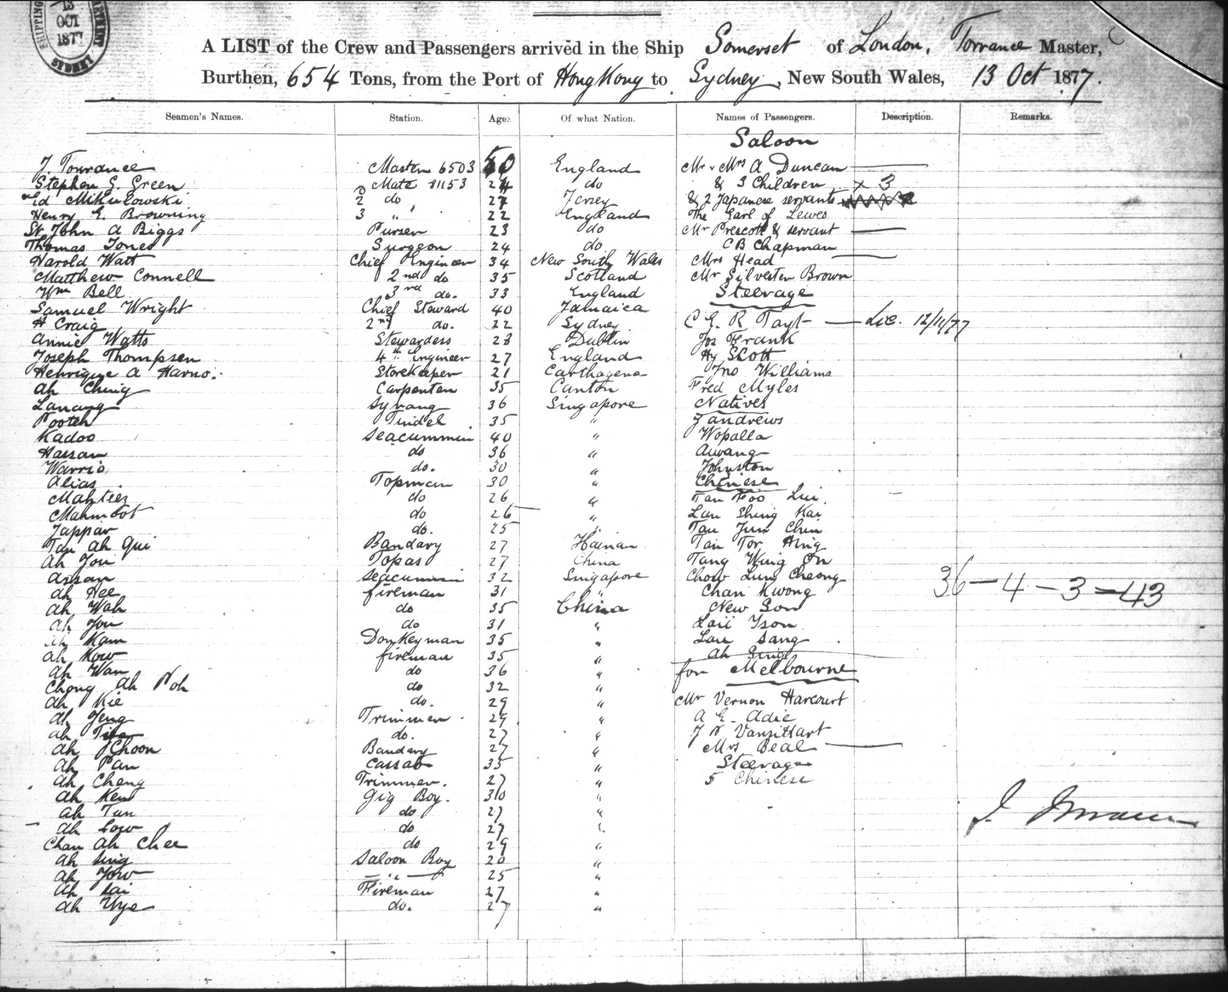 SHIPPING
13
OCT
1877
SYDNEY
A LIST of the Crew and Passengers arrived in the Ship Somerset of London, Torrance Master,
Burthen, 654 Tons, from the Port of Hong Kong to Sydney, New South Wales, 13 Oct 1877.
Seamen's Names. Station. Age. Of what Nation. Names of Passengers. Description. Remarks.
Saloon
J. Torrance Master 6503 50 England Mr & Mrs A Duncan
Stephen G. Green Mate 11153 24 do & 3 Children x 3
Ed Mikulowski 2 do 27 Jersey & 2 Japanese servants
Henry E. Browning 3 " 22 England The Earl of Lewes
St John A Biggs Purser 23 do Mr Prescott & servant
Thomas Jones Surgeon 24 do C B Chapman
Harold Watt Chief Engineer 34 New South Wales Mrs Head
Matthew Connell 2nd do 35 Scotland Mr Silvester Brown
Wm Bell 3rd do. 33 England Steerage
Samuel Wright Chief Steward 40 Jamaica
H Craig 2nd do. 22 Sydney C G. R Tayt Lic. 12/11/77
Annie Watts Stewardess 28 Dublin Jos Frank
Joseph Thompson 4th Engineer 27 England Hy Scott
Henrique A Harno. Storekeeper 21 Carthagena Jno Williams
Ah Ching Carpenter 35 Canton Fred Myles
Lanang Syrang 36 Singapore Natives
Pooteh Tindel 35 " J andrews
Kadoo Seacunnin 40 " Wopalla
Hassan do 36 " Awang
Warrio do. 30 " Johnston
Alias Topman 30 " Chinese
do 26 " Tan Foo Lui
Mahmoot do 26 " Lau Shing Kai
Jappar do. 25 " Tau Jun Chin
Tan Ah Gui Bandary 27 Hainan Tan Tor Hing
Ah Jou Topas 27 China Tang Wing On
Assan Seacunnin 32 Singapore Chow Lung Cheong
Ah Hee fireman 31 " Chan Kwong 36 - 4 - 3 = 43
Ah Wah do 35 China New Son
Ah Jou do 31 " Lail Tson
Ah Kam Donkeyman 35 " Lau Sang
Ah Kow fireman 35 " Ah Sing
Ah Wan do 36 " for Melbourne
Chong Ah Poh do 32 "
Ah Kie do. 29 " Mr Vernon Harcourt
Ah Jeng Trimmer 29 " A E. Adie
Ah do. 27 " J N Vansittart
Ah Choon Bandary 27 " Mrs Beal
Ah Pan Cassab 35 " Steerage
Ah Cheng Trimmer. 27 " 5 Chinese
Ah Ken Gig Boy. 30 "
Ah Tan do 27 "
Ah Low do 27 "
Chan Ah Chee do 29 "
Ah Sing Saloon Boy 20 "
Ah Jow " 25 "
Ah Sai Fireman 27 "
Ah Wye do. 27 "